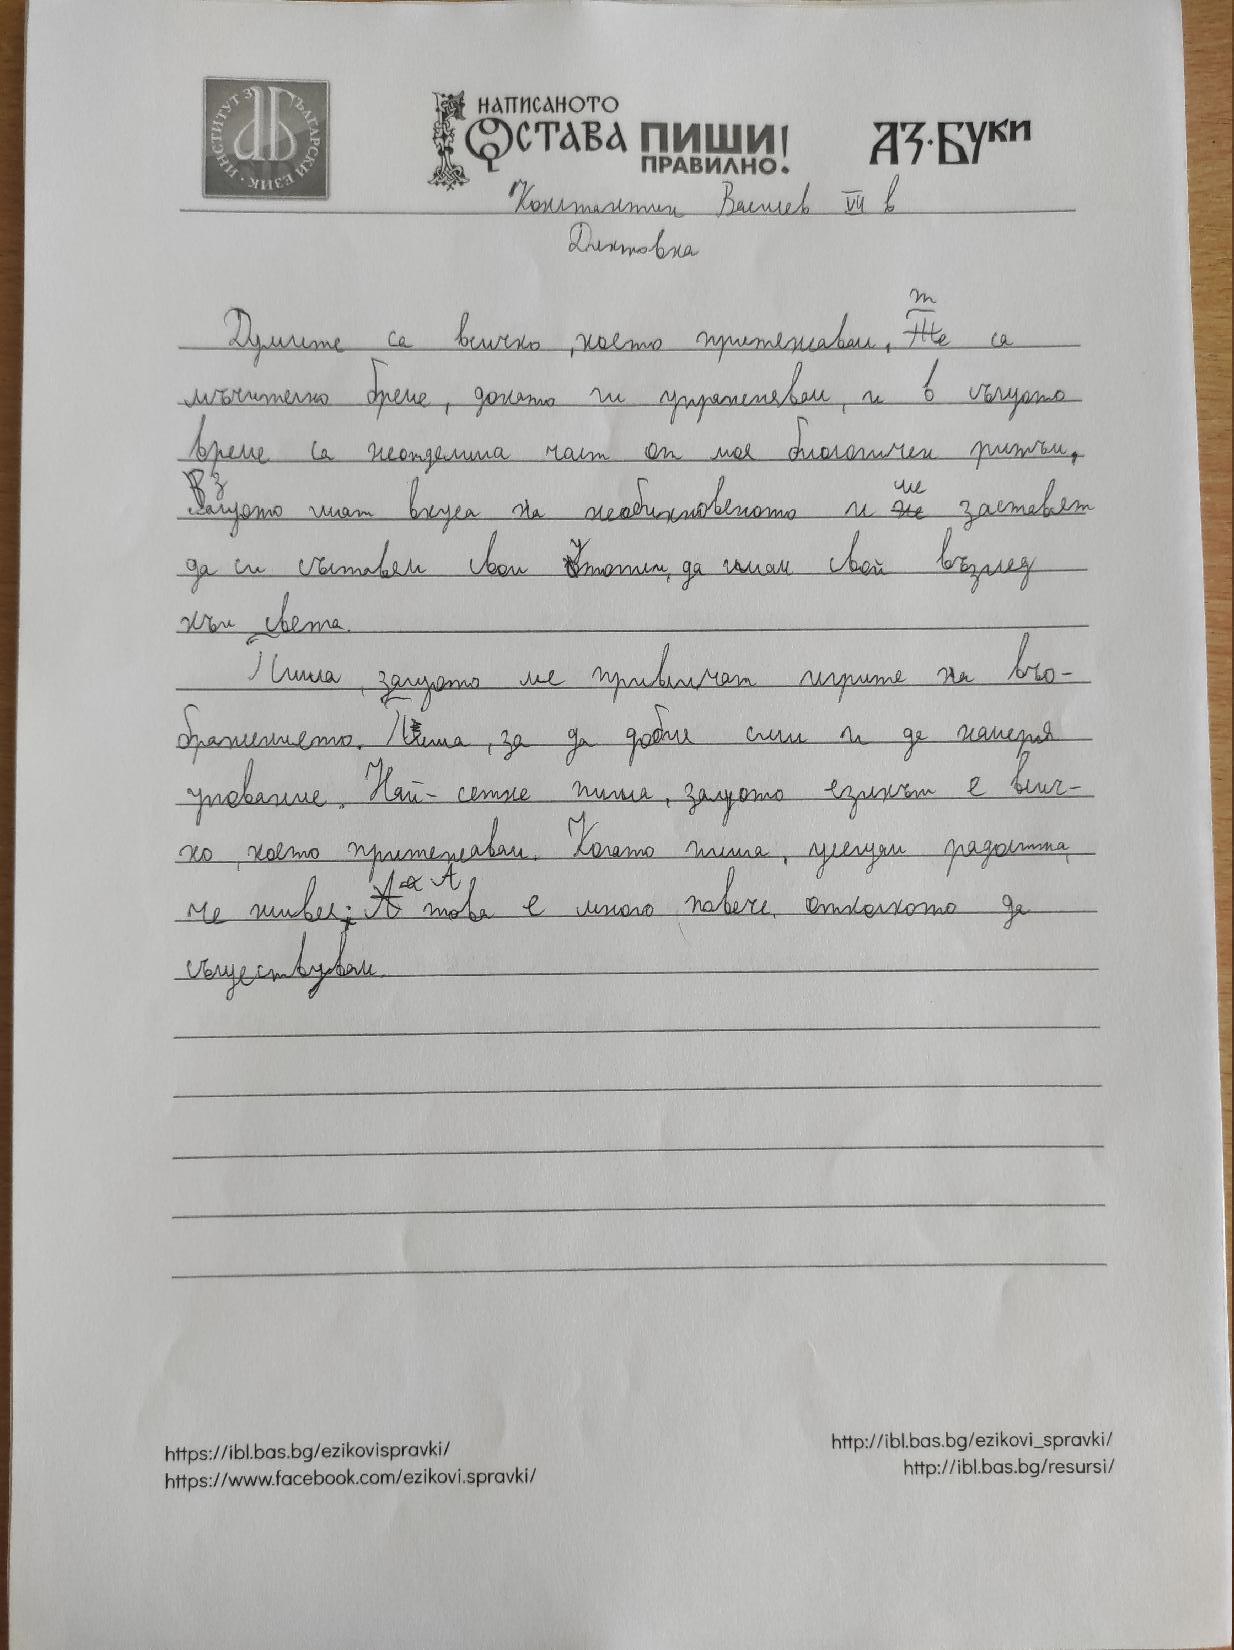 ИНСТИТУТ ЗА БЪЛГАРСКИ ЕЗИК
НАПИСАНОТО
ОСТАВА ПИШИ!
ПРАВИЛНО!
АЗ·БУКИ
Константин Василев VII в
Диктовка
Думите са всичко, което притежавам, те са
мъчително бреме, докато ги укротявам, и в същото
време са неотделима част от моя биологичен ритъм,
защото имат вкуса на необикновеното и ме заставят
да си съставям свои, да имам свой възглед
към света.
Пиша, защото ме привличат игрите на въо-
бражението. Пиша, за да добия сили и да намеря
упование. Най-сетне пиша, защото езикът е всич-
ко, което притежавам. Когато пиша, усещам радостта,
че живея; А това е много повече, отколкото да
съществувам.
https://ibl.bas.bg/ezikovispravki/
https://www.facebook.com/ezikovi.spravki/
http://ibl.bas.bg/ezikovi_spravki/
http://ibl.bas.bg/resursi/